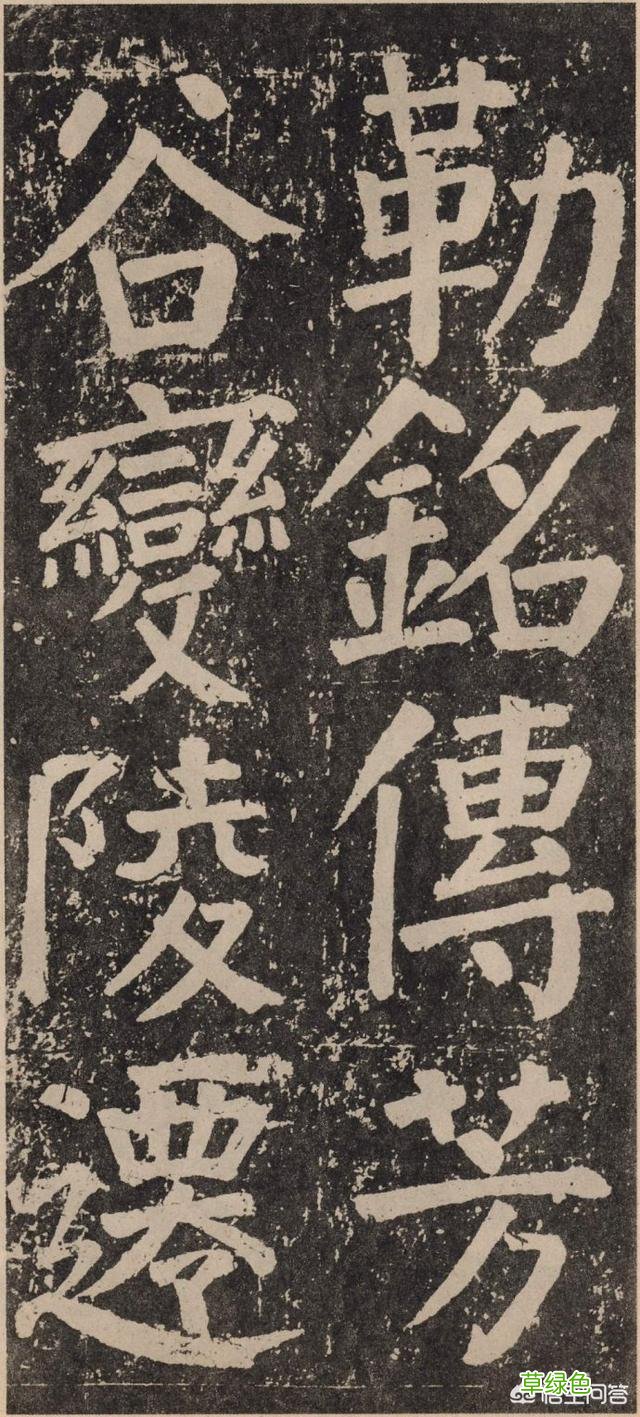 勒銘傳芳
谷變陵遷
草绿色
悟空问答